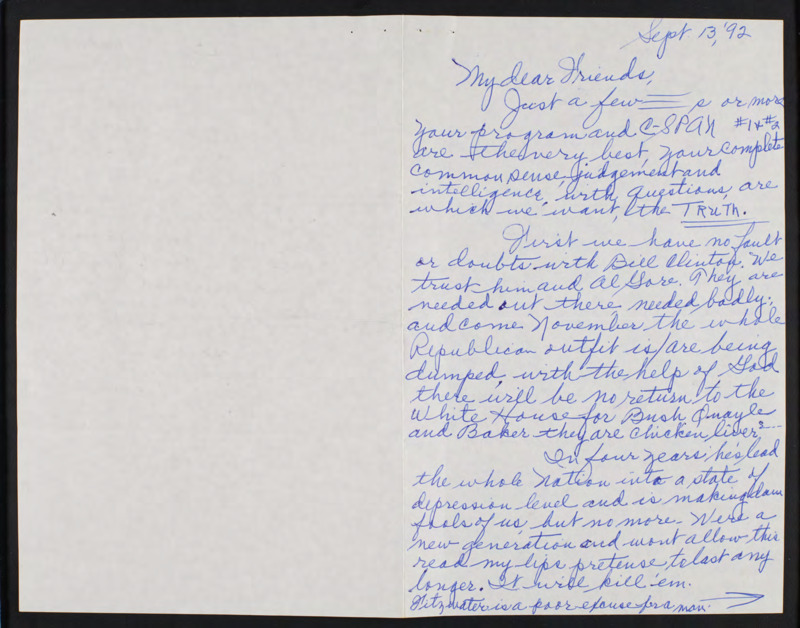 Sept. 13, '92
My dear Friends,
Just a few s or more
your program and C-SPAN #1 & #2
are the very best, your complete
common sense, judgement and
intelligence, with, questions, are
which we want, the TRUTH.
First we have no fault
or doubts with Bill Clinton. We
trust him and Al Gore. They are
needed out there, needed badly,
and come November the whole
Republican outfit is/are being
dumped, with the help of God
there will be no return to the
White House for Bush Quayle
and Baker they are chicken liver
In four years he's lead
the whole Nation into a state of
depression level and is making
fools of us, but no more. We're a
new generation and wont allow this
read my lips pretense, to last any
longer. It will kill 'em.
Fitzwater is a poor excuse for a man.